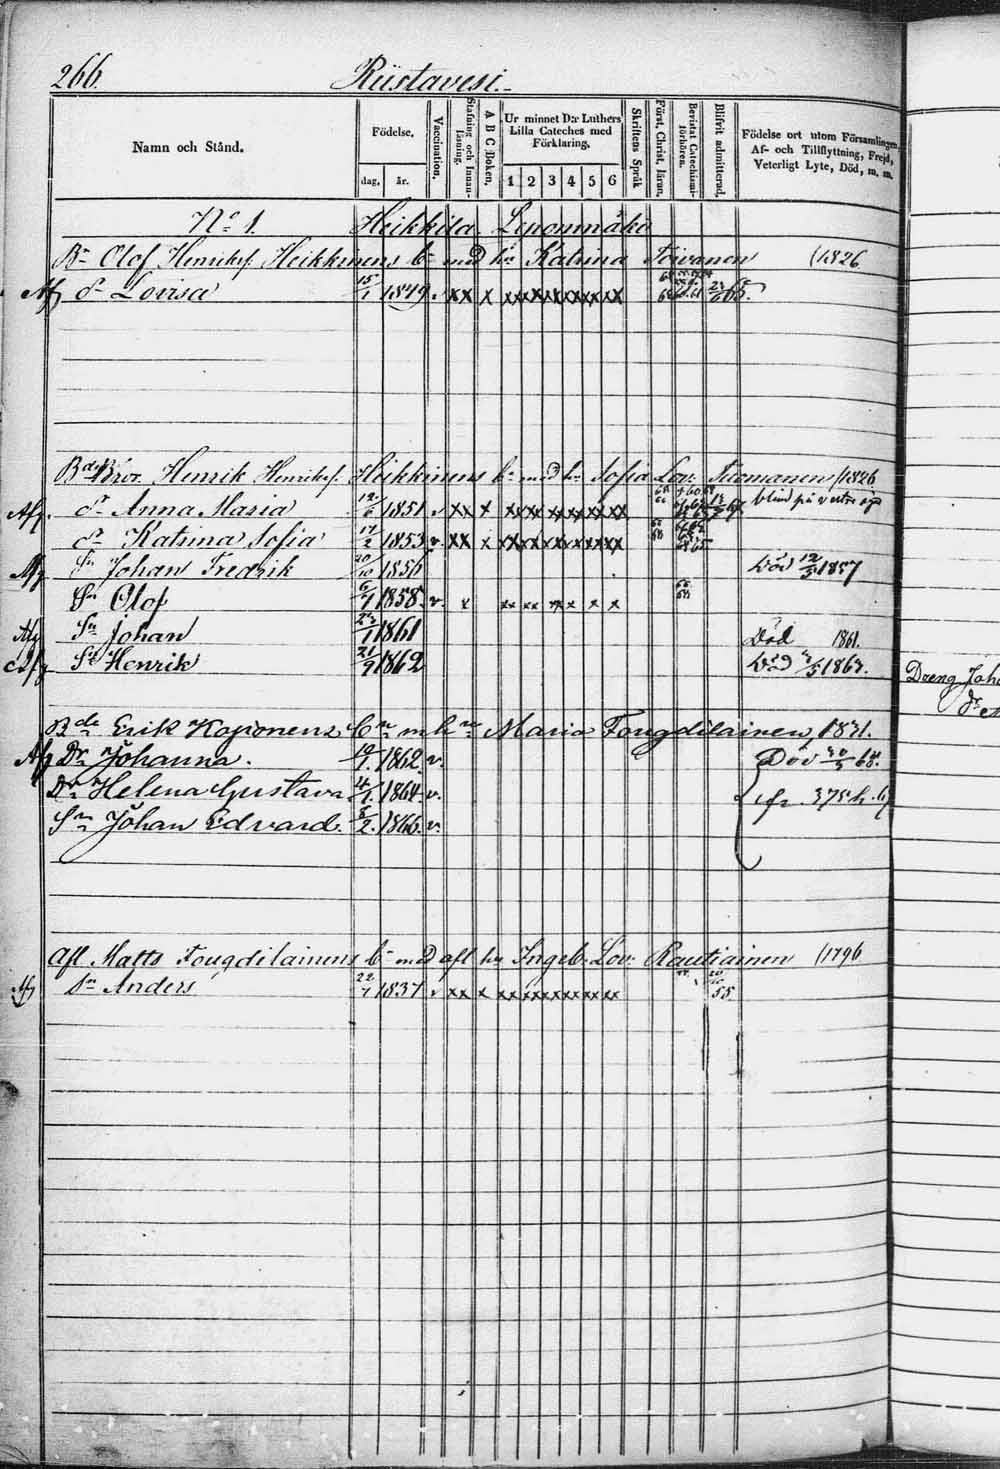 266.
Riistavesi.
Namn och Stånd.
Födelse.
dag.
år.
Vaccination.
Stafning och Innanläsning.
A B C Boken.
Ur minnet D:r Luthers Lilla Cateches med Förklaring.
1 2 3 4 5 6
Skriftens Språk
Först. Christ. läran.
Bevistat Catechismiförhören.
Blifvit admitterad.
Födelse ort utom Församlingen, Af- och Tillflyttning, Frejd, Veterligt Lyte, Död, m. m.
No 1. Heikkilä
Bn Olof Henricsf. Heikkinens bn med hu Katrina Toivanen (1826
Afg dr Lovisa 15/1 1849. v xx x xx xx xx xx xx xx 65.
Bde Bror Henrik Henricsf. Heikkinens bn med hu Sofia Lov: Tuomanen (1826
Afg. dr Anna Maria 12/6 1851 v xx x xx xx xx xx xx xx blind på
dr Katrina Sofia 17/2 1853 v. xx x xx xx xx xx xx xx
Afg Sn Johan Fredrik 20/10 1856 Död 12/5 1857
Sn Olof 6/7 1858. v. x xx xx xx x x x
Afg Sn Johan 1861 Död 1861.
Afg Sn Henrik 21/9 1862 Död
Bde Erik Kaponens bn m hu Maria Fougdilainen, 1831.
Afg Dr Johanna. 1862. v. Död
Dr Helena Gustava 4/1. 1864. v. fr. 375 h.
Sn Johan Edvard. 8/2. 1866. v.
Afl Matts Fougdilainens bn med afl hu Ingeb. Lov: Rautiainen (1796
Afg Sn Anders 22/7 1837 v xx x xx xx xx xx xx xx 55.
Dreng Joh